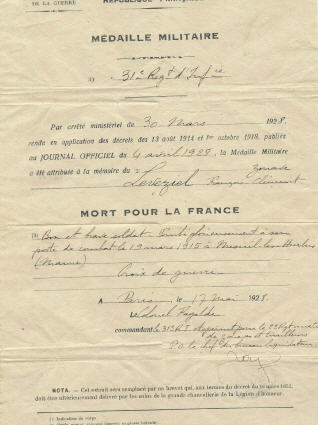 DE LA GUERRE
MÉDAILLE MILITAIRE
31e Regt d'Infie
Par arrêté ministériel du 30 Mars 1928,
rendu en application des décrets des 13 août 1914 et 1er octobre 1918, publiée
au JOURNAL OFFICIEL du 4 avril 1928, la Médaille Militaire
a été attribuée à la mémoire du zouave
Levéziel François Clément
MORT POUR LA FRANCE
(1) Bon et brave soldat. Tombé glorieusement à son
poste de combat le 12 mars 1915 à Mesnil les Hurlus
(Marne)
Croix de guerre
A Paris, le 17 Mai 1928.
Le Colonel
commandant le 31e R.I.
P.O. le
NOTA. — Cet extrait sera remplacé par un brevet qui, aux termes du décret du 16 mars 1852,
doit être ultérieurement délivré par les soins de la grande chancellerie de la Légion d'Honneur.
(1) Indication du corps.